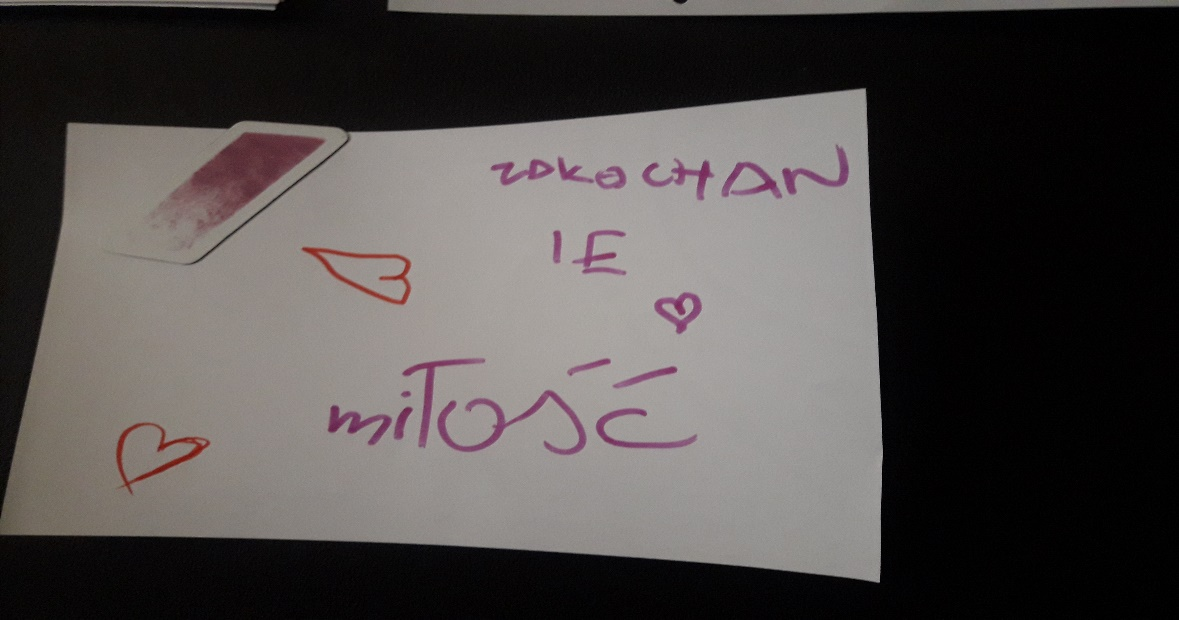 ZDKOCHAN
IE
miłość